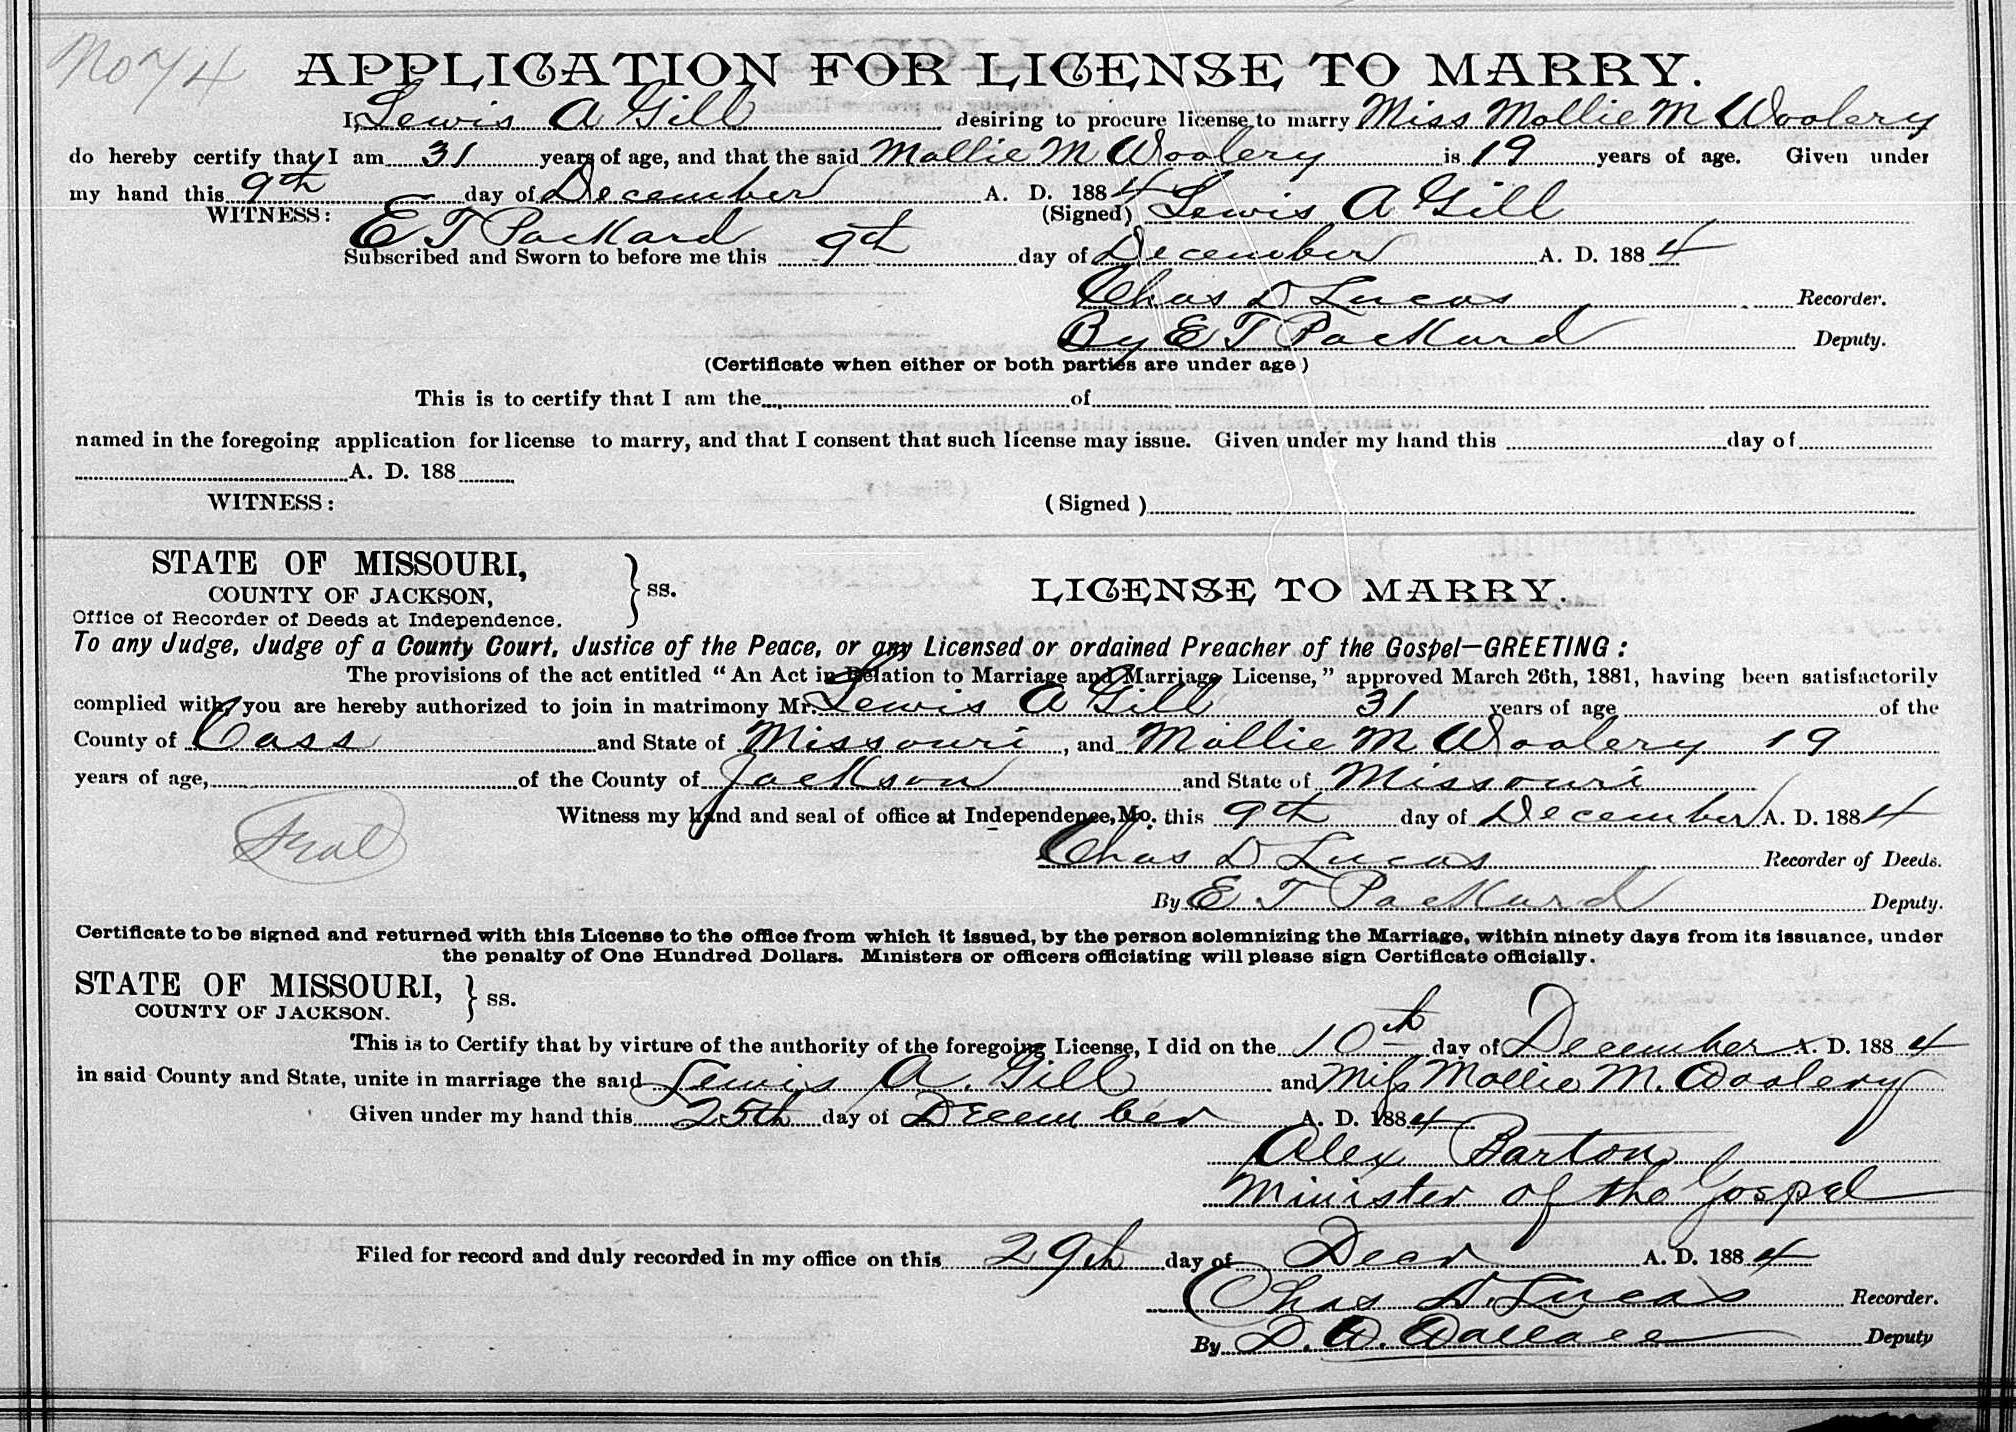 No 74
APPLICATION FOR LICENSE TO MARRY.
I, Lewis A Gill desiring to procure license to marry Miss Mollie M Woolery
do hereby certify that I am 31 years of age, and that the said Mollie M Woolery is 19 years of age. Given under
my hand this 9th day of December A. D. 1884
WITNESS: (Signed) Lewis A Gill
E T Packard
Subscribed and Sworn to before me this 9th day of December A. D. 1884
Chas D Lucas Recorder.
By E T Packard Deputy.
(Certificate when either or both parties are under age)
This is to certify that I am the of
named in the foregoing application for license to marry, and that I consent that such license may issue. Given under my hand this day of
A. D. 188
WITNESS: (Signed)
STATE OF MISSOURI,
COUNTY OF JACKSON, } ss. LICENSE TO MARRY.
Office of Recorder of Deeds at Independence.
To any Judge, Judge of a County Court, Justice of the Peace, or any Licensed or ordained Preacher of the Gospel—GREETING:
The provisions of the act entitled "An Act in Relation to Marriage and Marriage License," approved March 26th, 1881, having been satisfactorily
complied with, you are hereby authorized to join in matrimony Mr. Lewis A Gill 31 years of age of the
County of Cass and State of Missouri, and Mollie M Woolery 19
years of age, of the County of Jackson and State of Missouri
Witness my hand and seal of office at Independence, Mo. this 9th day of December A. D. 1884
Seal
Chas D Lucas Recorder of Deeds.
By E T Packard Deputy.
Certificate to be signed and returned with this License to the office from which it issued, by the person solemnizing the Marriage, within ninety days from its issuance, under
the penalty of One Hundred Dollars. Ministers or officers officiating will please sign Certificate officially.
STATE OF MISSOURI, } ss.
COUNTY OF JACKSON.
This is to Certify that by virture of the authority of the foregoing License, I did on the 10th day of December A. D. 1884
in said County and State, unite in marriage the said Lewis A. Gill and Miss Mollie M. Woolery
Given under my hand this 25th day of December A. D. 1884
Alex Barton
Minister of the Gospel
Filed for record and duly recorded in my office on this 29th day of Decr A. D. 1884
Chas D. Lucas Recorder.
By D. W. Wallace Deputy